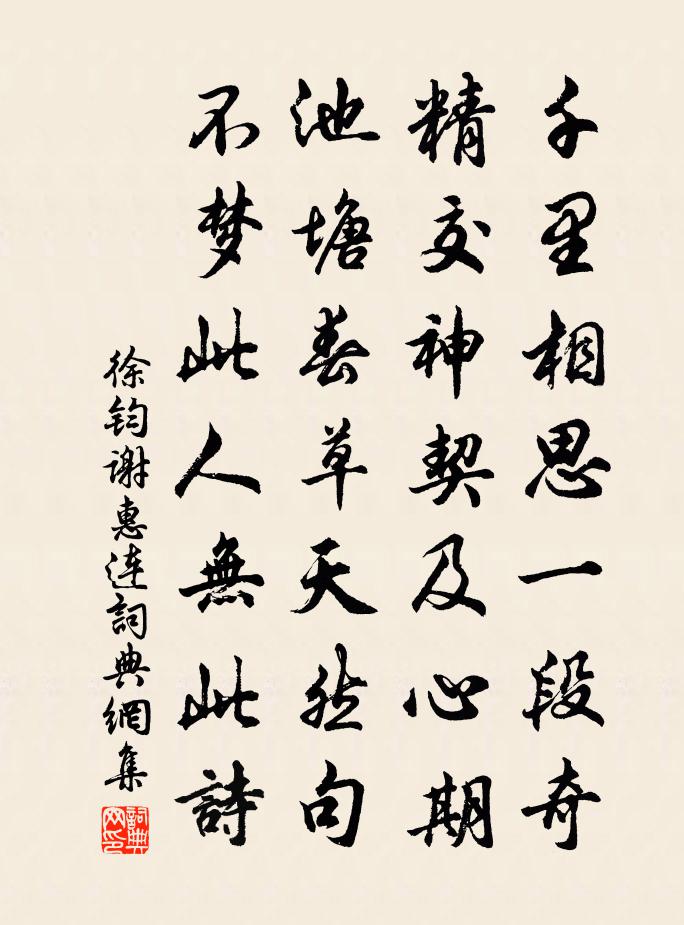 千里相思一段奇
精交神契及心期
池塘春草天然句
不梦此人無此詩
徐钧谢惠连詞典網集
詞典网印